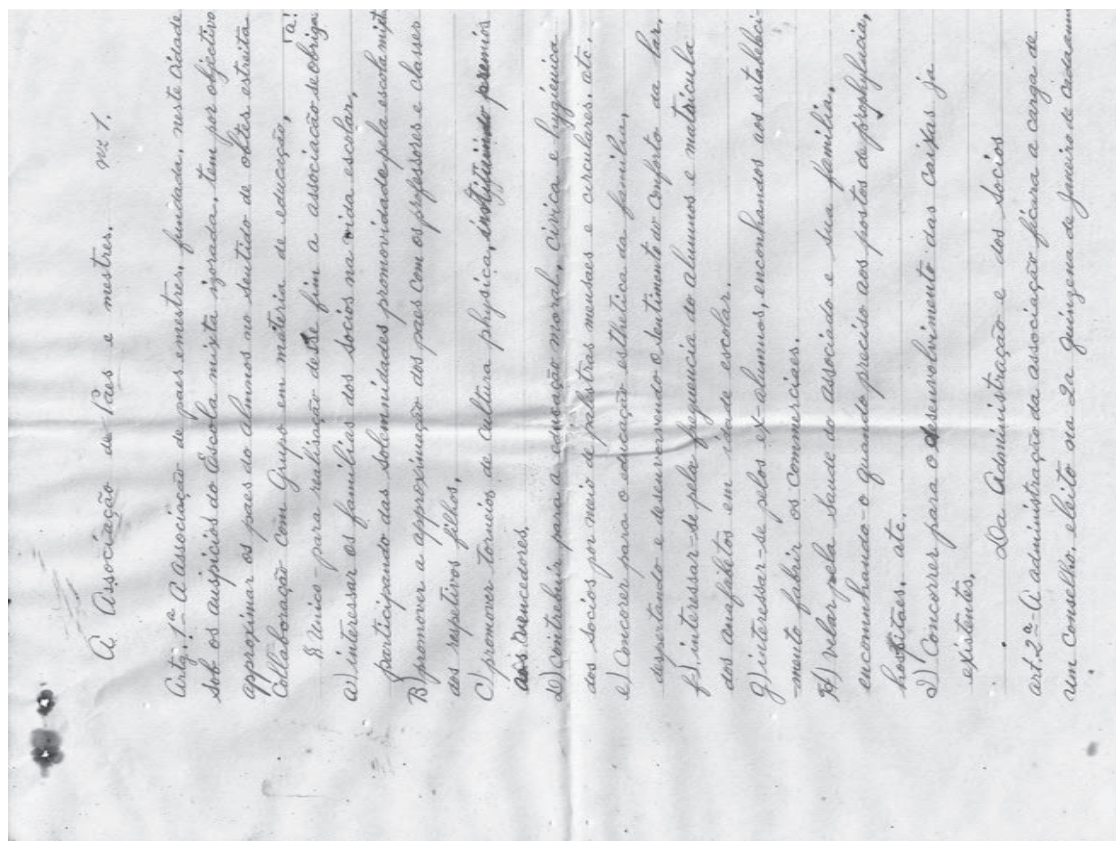 A Associação de Paes e mestres. nº 1.
Artg. 1º A Associação de paes mestres, fundada, neste cidade
sob os auspicios do Escola mista igorada, tem por objectivo
approximar os paes do alumnos no sentido de obter estreita
Collaboração com Grupo em materia de educação,
§ Unico-para realisação desse fim a associação se obriga rá:
a) interessar os familias dos socios na vida escolar,
participando das solemnidades promovidade pela escola mista
B) promover a approximação dos paes com os professores e classes
dos respetivos filhos,
C) promover torneios de cultura physica, instituindo premios
aos vencedores.
d) contribuir para a educação moral, civica e hygienica
dos socios por meio de palestras mensaes e circulares. atc.
e) Concorer para o educação esthetica da familia,
despertado e desenvolvendo o sentimento do conforto da lar,
f) interessar-se pela frequencia do alumnos e matricula
dos analfabetos em idade escolar.
g) interessar-se pelos ex-alumnos, enconhandos aos estabeleci-
-mento fabair os commerciaes.
H) velar pela saude do associado e sua familia,
encomnhando-o quando preciso aos postos de prophylucia,
hospitaes. atc.
I) Concorrer para o desenvolvimento das caixas ja
existentes,
Da Administração e dos Socios
art. 2º-A administração da associação ficara a carga de
um Conselho, eleito na 2a quinzena de Janeiro de cada anno